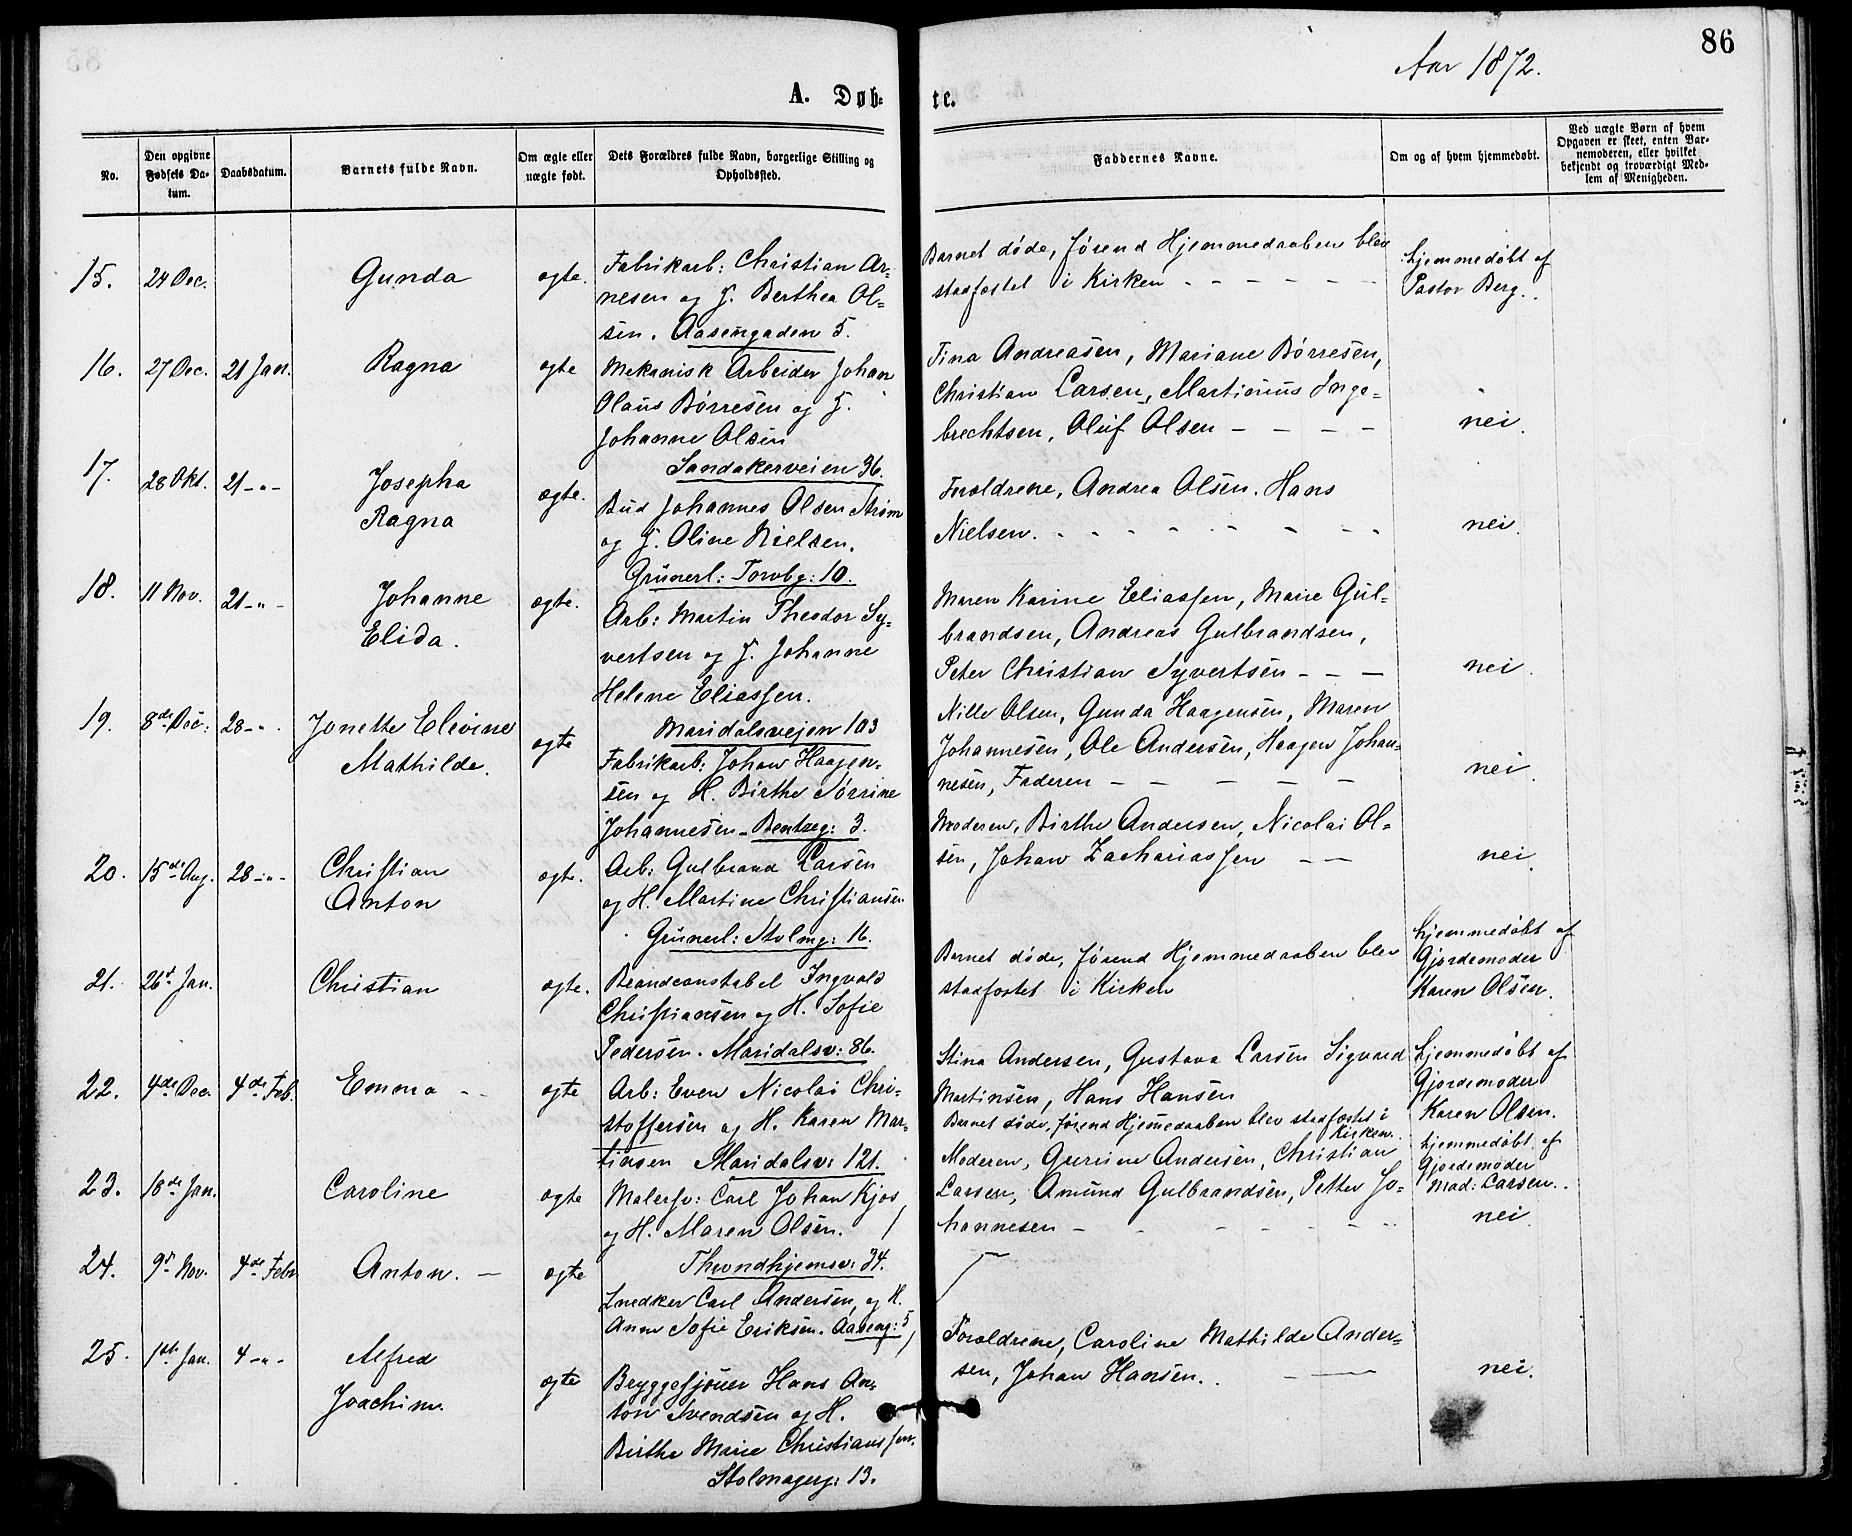 86
Aar 1872.
A. Døb-
te.
No.
Den opgivne Fødsels Da-
tum.
Daabsdatum.
Barnets fulde Navn.
Om ægte eller
uægte født.
Dets Forældres fulde Navn, borgerlige Stilling og
Opholdssted.
Faddernes Navne.
Om og af hvem hjemmedøbt.
Ved uægte Børn af hvem
Opgaven er skeet, enten Bar-
nemoderen, eller hvilket
bekjendt og troværdigt Med-
lem af Menigheden.
15. 24 Dec. Gunda ægte.
Fabrikarb: Christian Ar-
nesen og F. Berthea Ol-
sen. Aasengaden 5.
Barnet døde, førend Hjemmedaaben blev
stadfæstet i Kirken - - - - -
hjemmedøbt af
Pastor Berg.
16. 27 Dec. 21 Jan. Ragna ægte
Mekanisk Arbeider Johan
Olaus Børresen og F.
Johanne Olsen
Sandakerveien 36.
Tina Andreasen, Mariane Børresen,
Christian Larsen, Martinius Inge-
brechtsen, Oluf Olsen - - - -
nei.
17. 28 Okt. 21 -"- Josepha
Ragna
ægte.
Bud Johannes Olsen Strøm
og F. Oline Nielsen.
Grünerl: Torvbg: 10.
Forældrene, Andrea Olsen. Hans
Nielsen. - - - - - - - -
nei.
18. 11 Nov. 21 -"- Johanne
Elida.
ægte.
Arb: Martin Theodor Sy-
vertsen og F. Johanne
Helene Eliassen.
Maridalsvejen 103
Maren Karine Eliassen, Marie Gul-
brandsen, Andreas Gulbrandsen,
Peter Christian Syvertsen - - -
nei.
19. 8de Dec: 28 -"- Jonette Elevine
Mathilde.
ægte
Fabrikarb: Johan Haagen-
sen og H. Birthe Sørrine
Johannesen - Bentzeg: 3.
Nille Olsen, Gunda Haagensen, Maren
Johannesen, Ole Andersen, Haagen Johan-
nesen, Faderen - - - - -
nei.
20. 15de Aug. 28 -"- Christian
Anton
ægte.
Arb: Gulbrand Larsen
og H. Martine Christiansen
Grünerl: Stolmg: 16.
Moderen, Birthe Andersen, Nicolai Ol-
sen, Johan Zachariassen - -
nei.
21. 26de Jan. Christian ægte.
Brandconstabel Ingvald
Christiansen og H. Sofie
Pedersen. Maridalsv: 86.
Barnet døde, førend Hjemmedaaben blev
stadfæstet i Kirken
hjemmedøbt af
Gjordemoder
Karen Olsen.
22. 4de Dec. 4de Feb. Emma - - ægte
Arb: Even Nicolai Chri-
stoffersen og H. Karen Mar-
tinsen Maridalsv: 121.
Stina Andersen, Gustava Larsen Sigvard
Martinsen, Hans Hansen
hjemmedøbt af
Gjordemoder
Karen Olsen.
23. 18de Jan. Caroline ægte
Malersv: Carl Johan Kjos
og H. Maren Olsen.
Throndhjemsv: 34.
Barnet døde, førend Hjemmedaaben blev stadfæstet i
Kirken.
hjemmedøbt af
Gjordemoder
Mad: Larsen.
24. 9de Nov. 4de Febr Anton. - ægte
Snedker Carl Andersen, og H.
Anne Sofie Eriksen. Aaseng: 5
Moderen, Gurine Andersen, Christian
Larsen, Amund Gulbrandsen, Petter Jo-
hannesen - - - - - -
nei
25. 1ste Jan. 4 -"- Alfred
Joachim.
ægte
Bryggesjouer Hans An-
ton Svendsen og H.
Birthe Marie Christianssen.
Stolmagerg: 13.
Forældrene, Caroline Mathilde Ander-
sen, Johan Hansen. - -
nei.